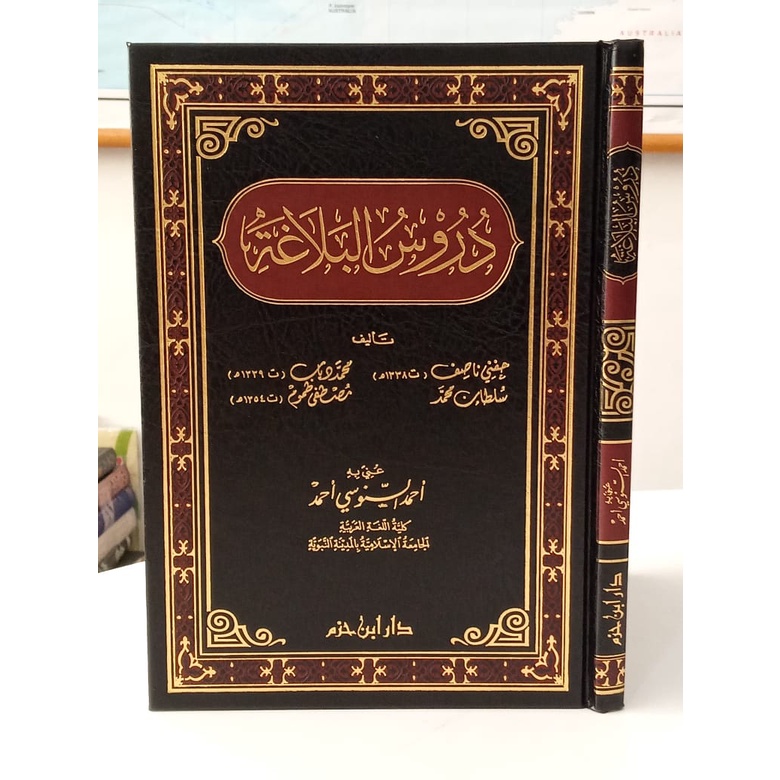 دُرُوسُ البَلَاغَةِ
تأليف
حفني ناصف (ت ١٣٣٨هـ) محمد دياب (ت ١٣٣٩هـ)
سلطان محمد مصطفى طموم (ت ١٣٥٤هـ)
عُنِيَ بِهِ
أحمد السنوسي أحمد
كلية اللغة العربية
الجامعة الإسلامية بالمدينة النبوية
دار ابن حزم
دُرُوسُ البَلَاغَةِ
عُنِيَ بِهِ
أحمد السنوسي أحمد
دار ابن حزم
AUSTRALIA
AUSTRALIA